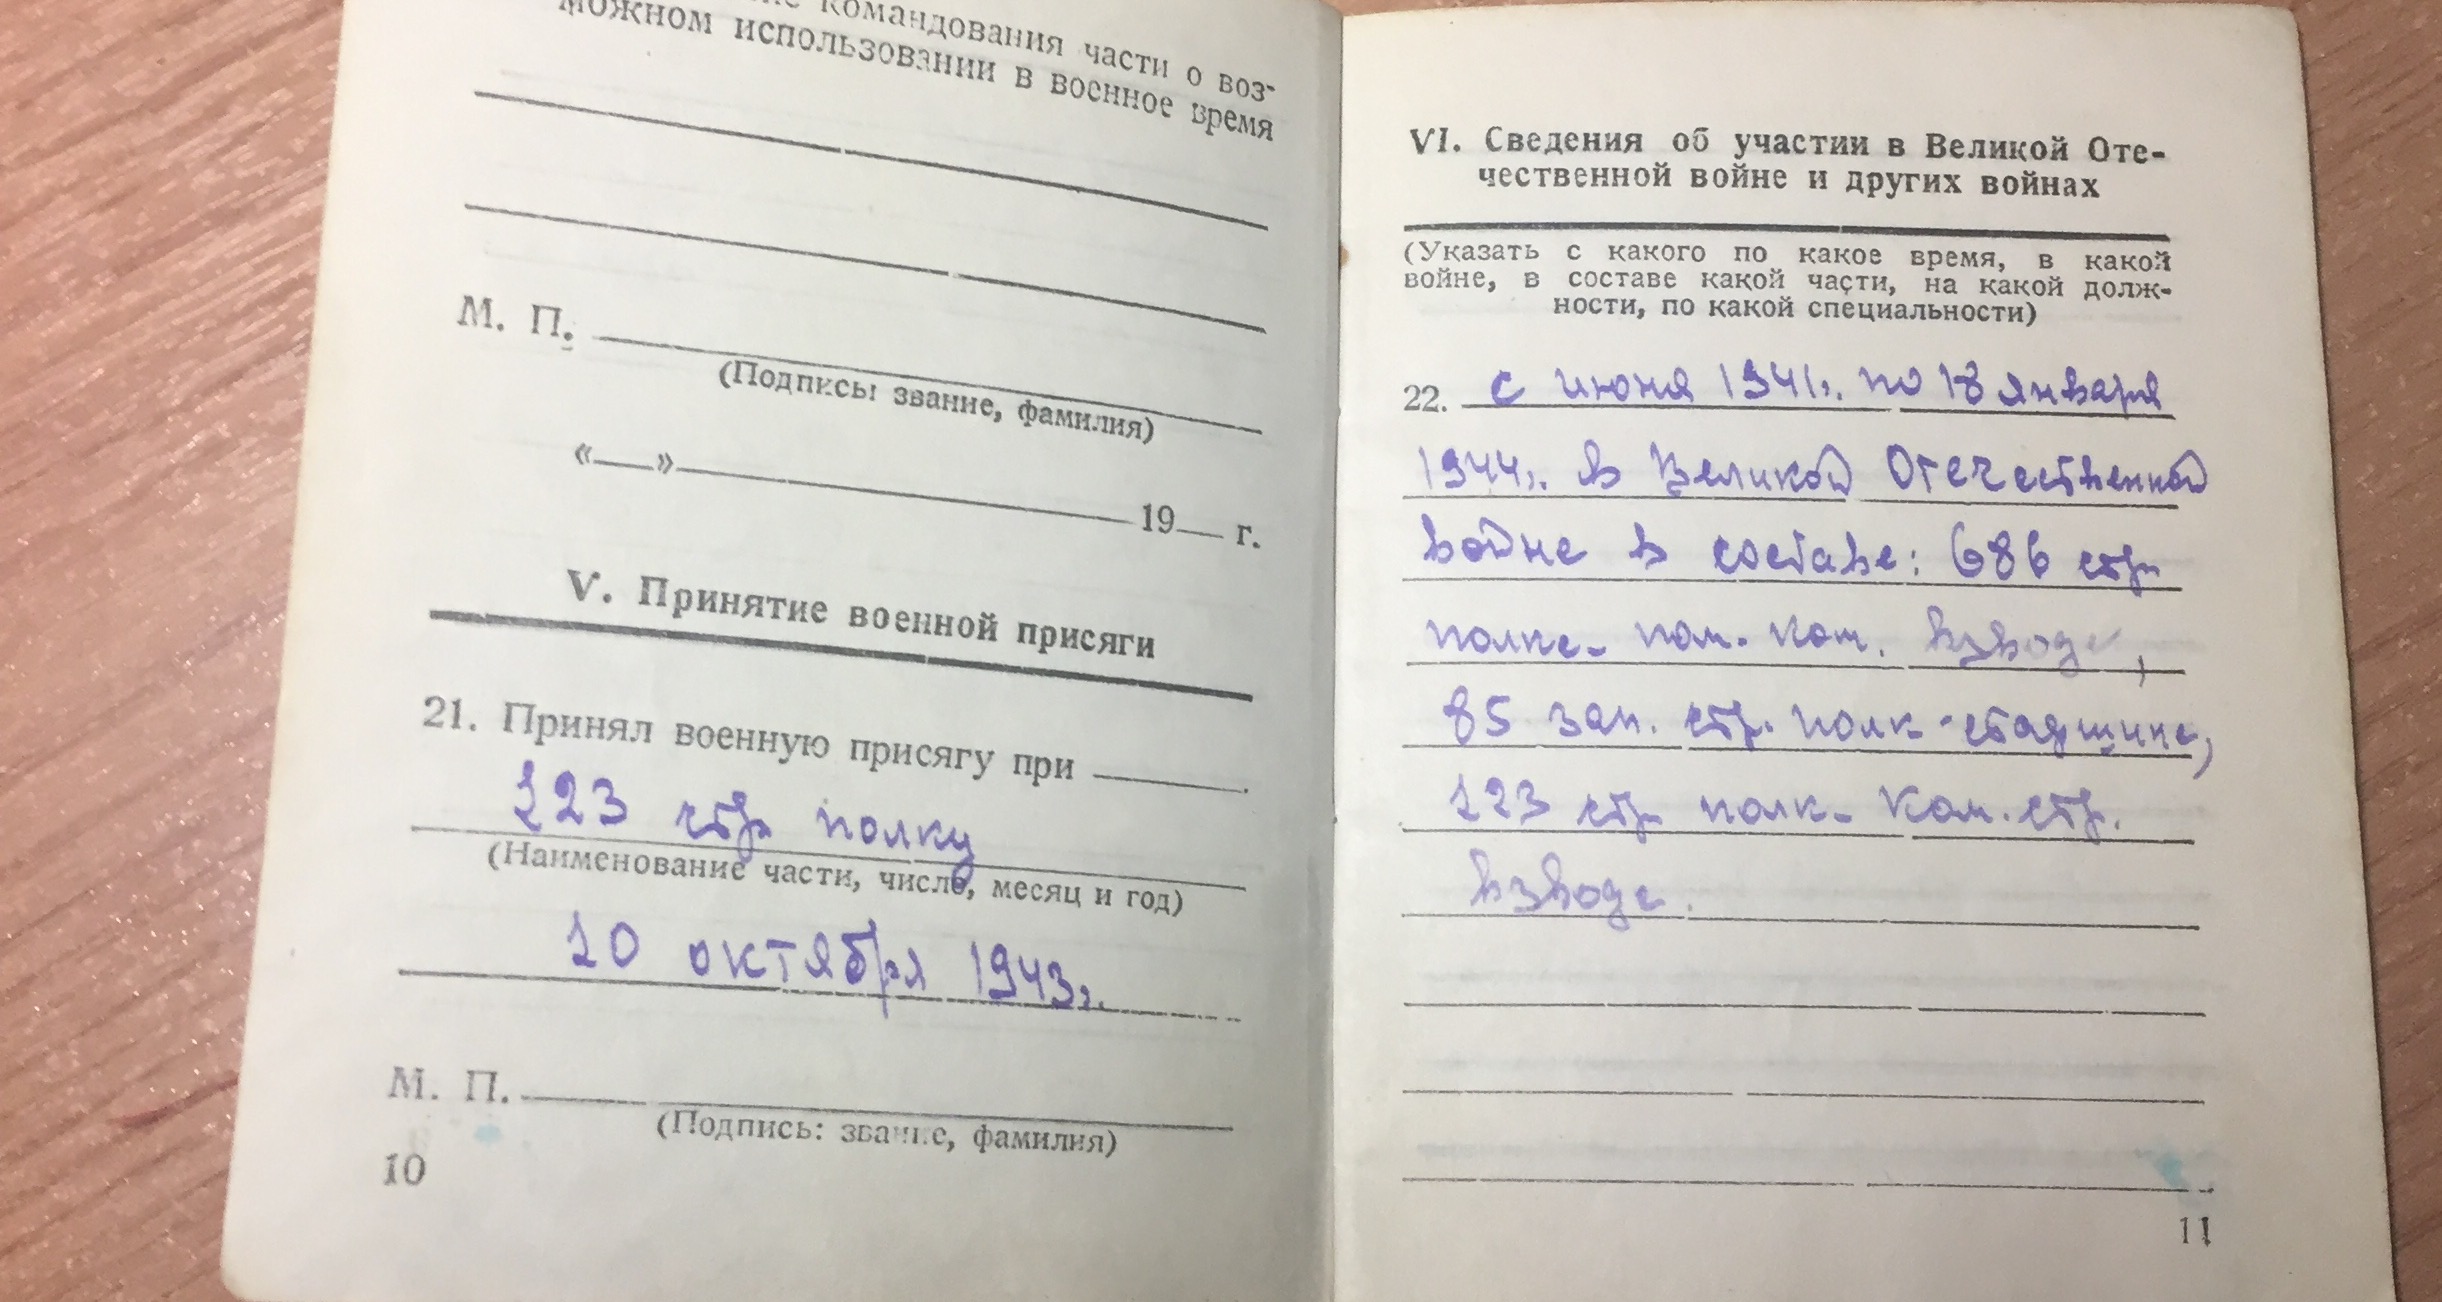 командования части о воз-
можном использовании в военное время
М. П.
(Подпись: звание, фамилия)
« » 19 г.
V. Принятие военной присяги
21. Принял военную присягу при
123 стр. полку
(Наименование части, число, месяц и год)
10 октября 1943г.
М. П.
(Подпись: звание, фамилия)
10
VI. Сведения об участии в Великой Оте-
чественной войне и других войнах
(Указать с какого по какое время, в какой
войне, в составе какой части, на какой долж-
ности, по какой специальности)
22. с июня 1941г. по 18 января
1944г. в Великой Отечественной
войне в составе: 686 стр.
полка - пом. ком. взвода,
85 зап. стр. полк - старшина,
123 стр. полк - ком. стр.
взвода.
11